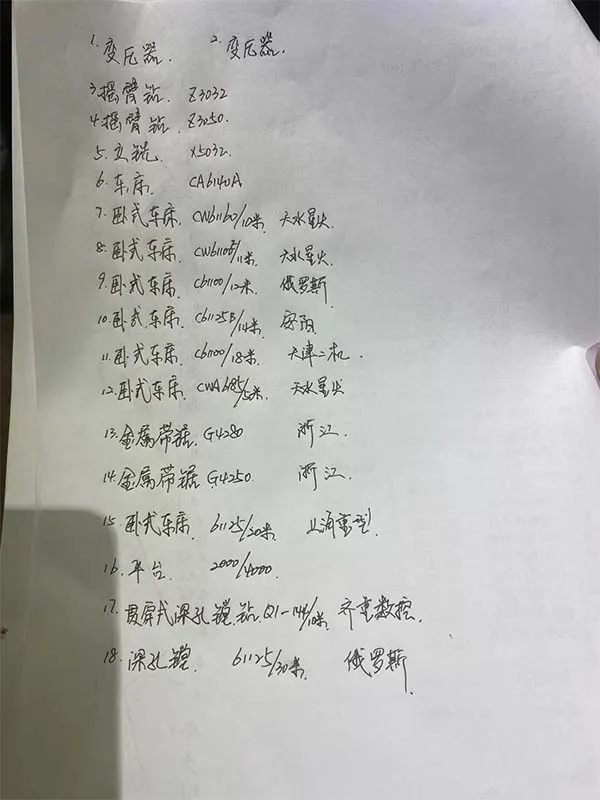 1. 变压器. 2. 变压器.
3. 摇臂钻. Z3032
4. 摇臂钻. Z3050.
5. 立铣. X5032.
6. 车床. CA6140A
7. 卧式车床. CW61160/10米. 天水星火
8. 卧式车床. /11米. 天水星火.
9. 卧式车床. C61100/12米. 俄罗斯
10. 卧式车床. C61125B/14米. 安阳
11. 卧式车床. C61100/18米. 天津二机.
12. 卧式车床. CWA6185/5米. 天水星火
13. 金属带锯. G4280 浙江.
14. 金属带锯 G4250. 浙江.
15. 卧式车床. 61125/20米. 上海重型.
16. 平台. 2000/4000.
17. 式深孔镗钻. /10米. 齐重数控.
18. 深孔镗 61125/30米. 俄罗斯.